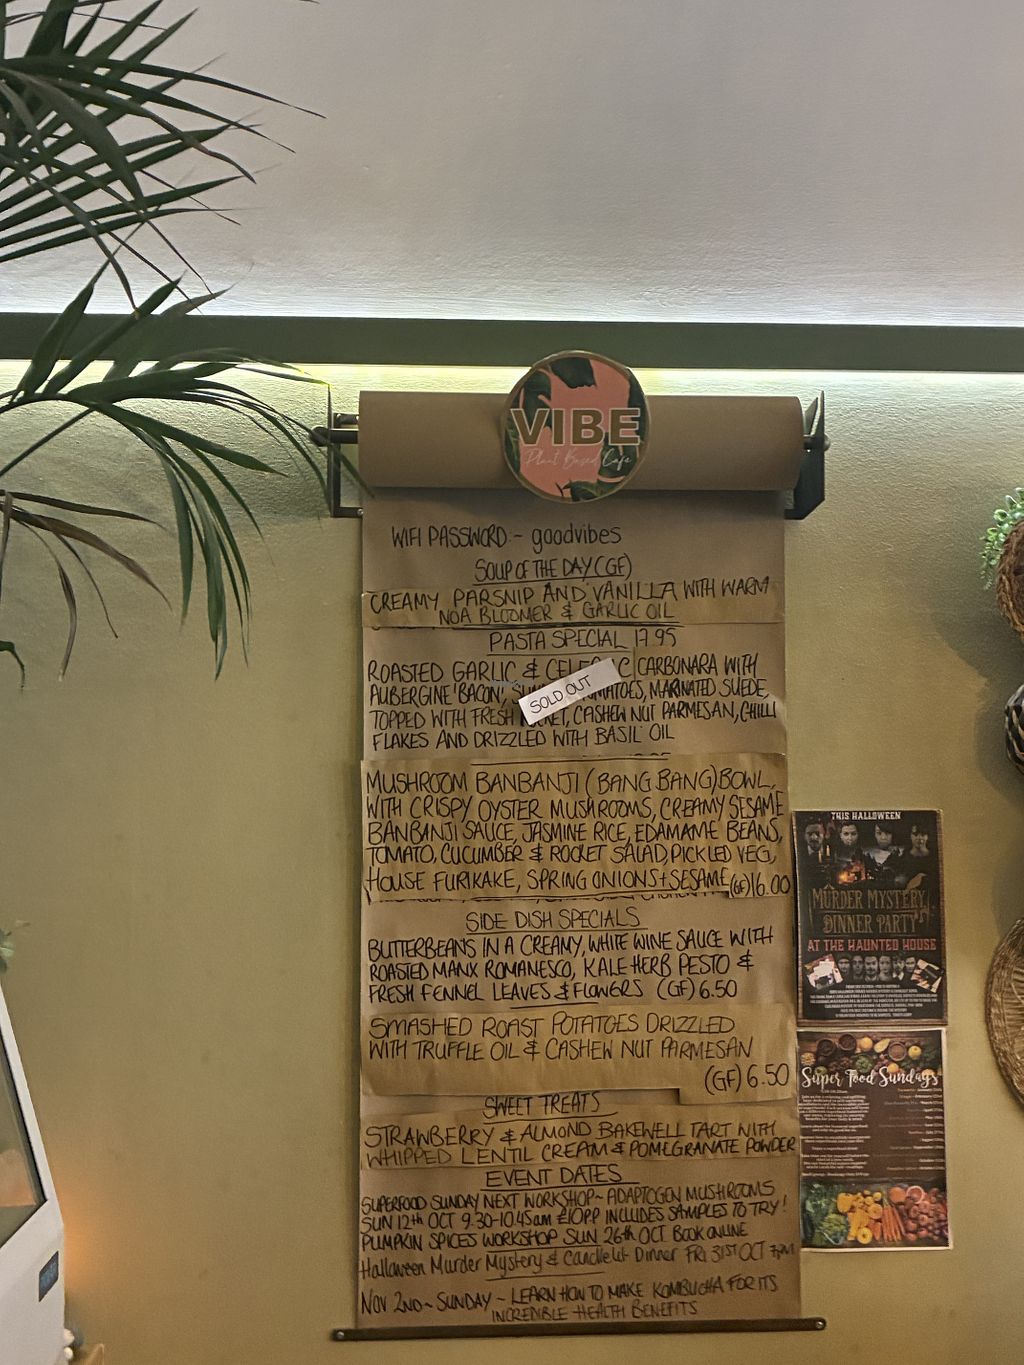 VIBE
Plant Based Cafe
WIFI PASSWORD:~ goodvibes
SOUP OF THE DAY (GF)
CREAMY PARSNIP AND VANILLA WITH WARM
NOA BLOOMER & GARLIC OIL
PASTA SPECIAL 17.95
ROASTED GARLIC & CARBONARA WITH
AUBERGINE 'BACON', MARINATED SUEDE,
SOLD OUT
TOPPED WITH FRESH ROCKET, CASHEW NUT PARMESAN, CHILLI
FLAKES AND DRIZZLED WITH BASIL OIL
MUSHROOM BANBANJI (BANG BANG) BOWL,
WITH CRISPY OYSTER MUSHROOMS, CREAMY SESAME
BANBANJI SAUCE, JASMINE RICE, EDAMAME BEANS,
TOMATO, CUCUMBER & ROCKET SALAD, PICKLED VEG,
HOUSE FURIKAKE, SPRING ONIONS + SESAME (GF) 16.00
SIDE DISH SPECIALS
BUTTERBEANS IN A CREAMY, WHITE WINE SAUCE WITH
ROASTED MANX ROMANESCO, KALE HERB PESTO &
FRESH FENNEL LEAVES & FLOWERS (GF) 6.50
SMASHED ROAST POTATOES DRIZZLED
WITH TRUFFLE OIL & CASHEW NUT PARMESAN
(GF) 6.50
SWEET TREATS
STRAWBERRY & ALMOND BAKEWELL TART WITH
WHIPPED LENTIL CREAM & POMEGRANATE POWDER
EVENT DATES
SUPERFOOD SUNDAY NEXT WORKSHOP~ ADAPTOGEN MUSHROOMS
SUN 12th OCT 9.30-10.45am £10PP INCLUDES SAMPLES TO TRY!
PUMPKIN SPICES WORKSHOP SUN 26th OCT BOOK ONLINE
Halloween Murder Mystery & Candlelit Dinner FRI 31ST OCT 7PM
NOV 2ND ~ SUNDAY ~ LEARN HOW TO MAKE KOMBUCHA FOR ITS
INCREDIBLE HEALTH BENEFITS
THIS HALLOWEEN
MURDER MYSTERY
DINNER PARTY
AT THE HAUNTED HOUSE
Super Food Sundays